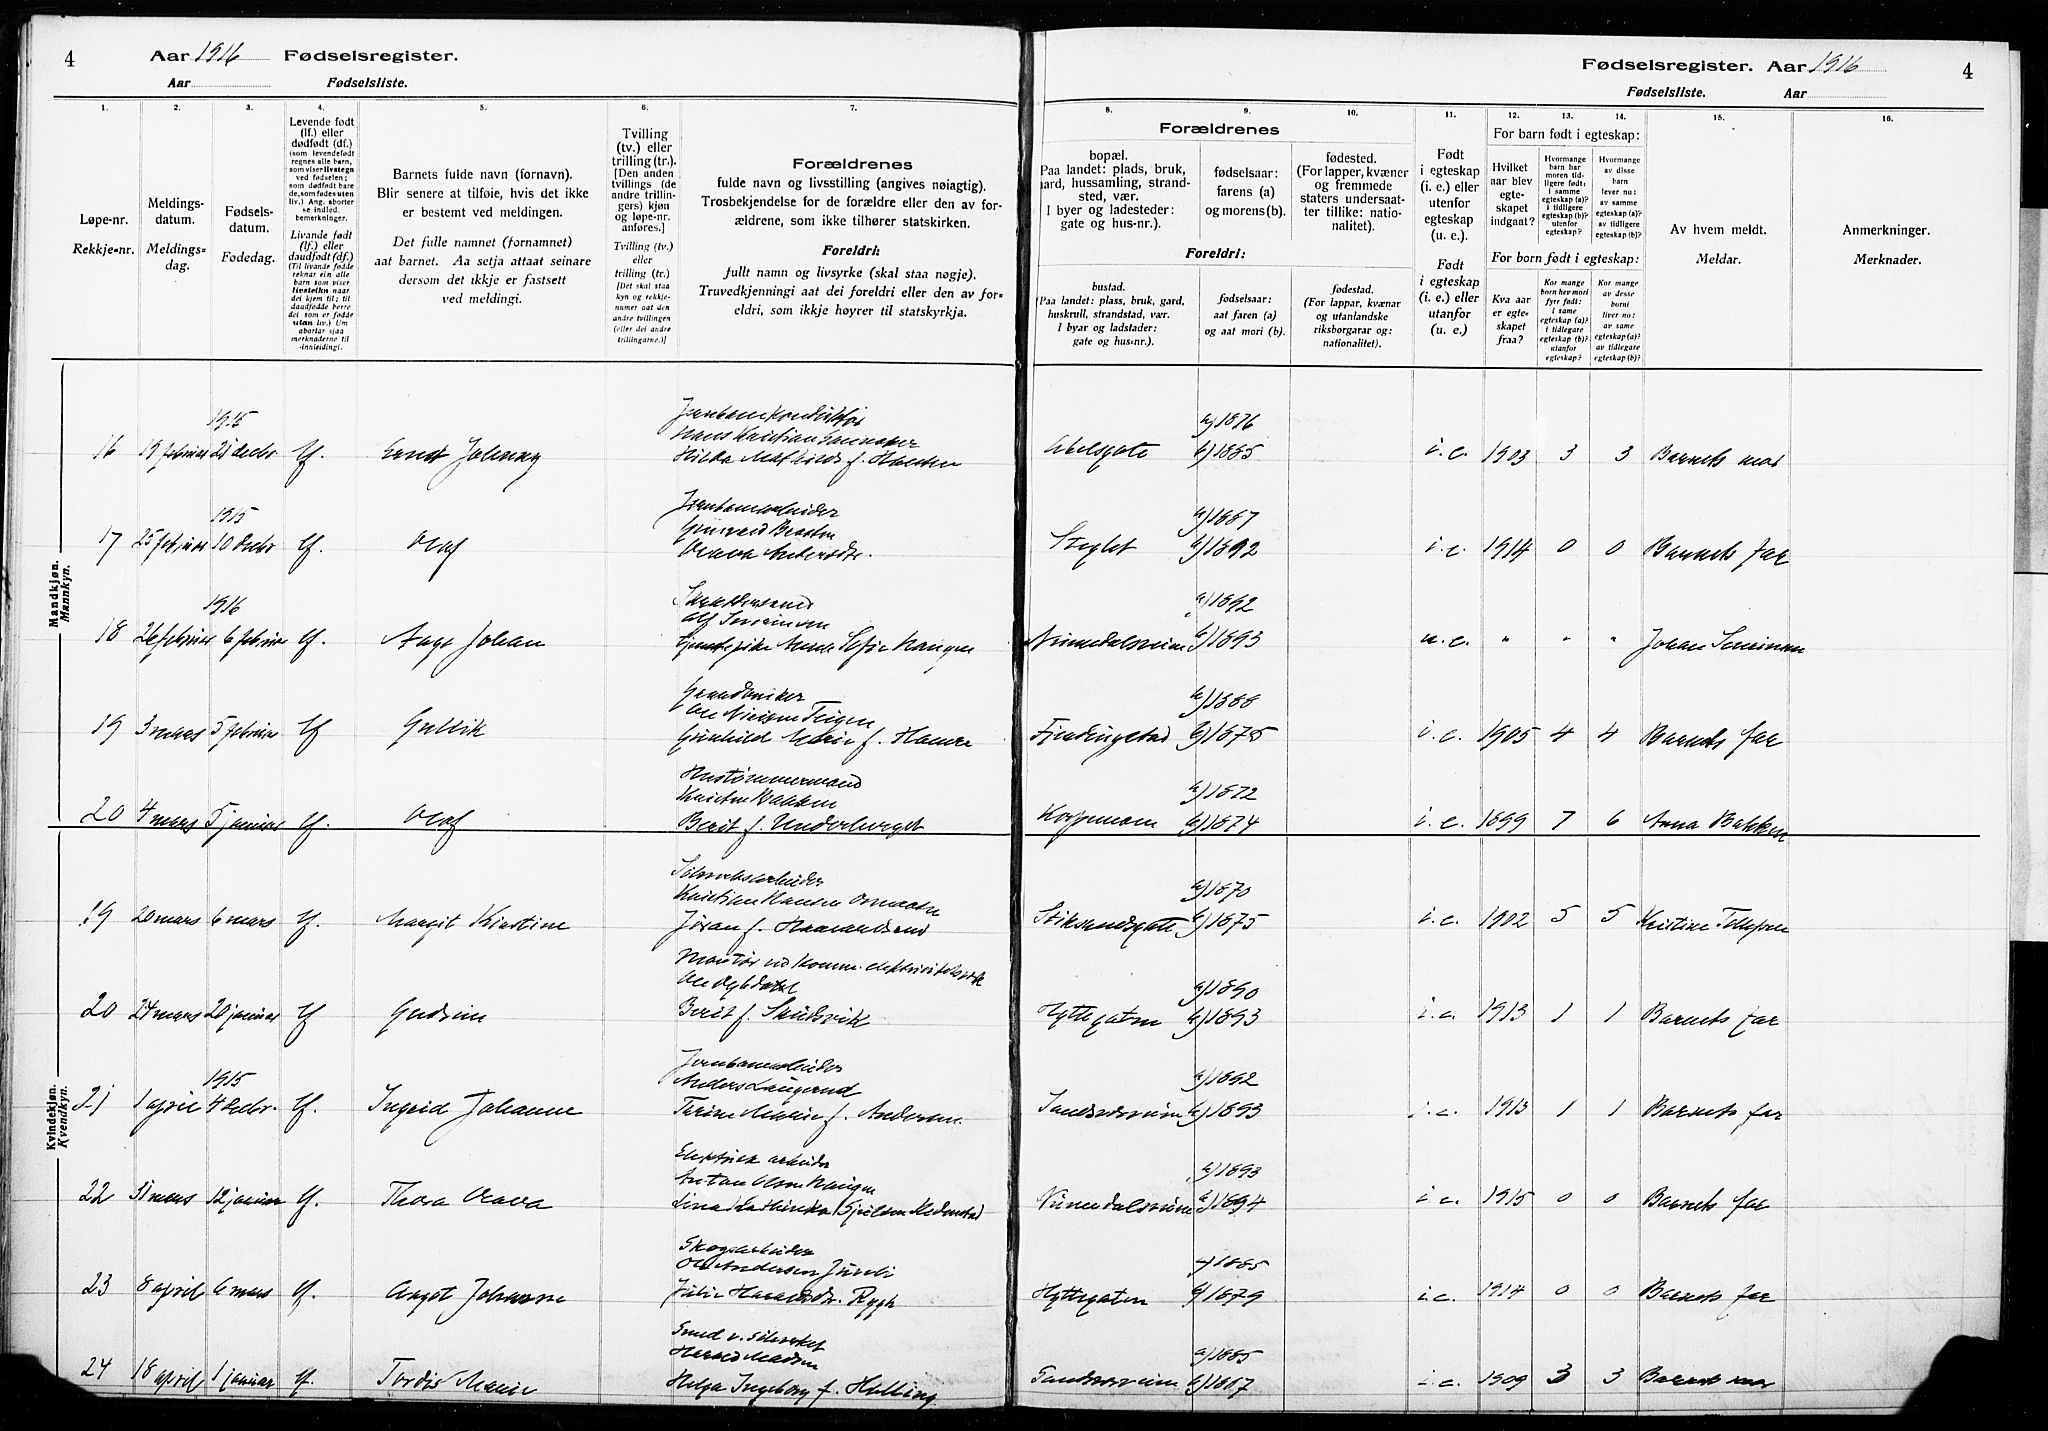 4 Aar 1916 Fødselsregister.
Aar Fødselsliste.
Fødselsregister. Aar 1916 4
Fødselsliste. Aar
1. 2. 3. 4. 5. 6. 7.
Løpe-nr.
Rekkje-nr.
Meldings-
datum.
Meldings-
dag.
Fødsels-
datum.
Fødedag.
Levende født
(lf.) eller
dødfødt (df.)
(som levendefødt
regnes alle barn,
som viser livstegn
ved fødselen;
som dødfødt bare
de, som fødes uten
liv.) Ang. aborter
se indled.
bemerkninger.
Livande født
(lf.) eller
daudfødt (df.)
(Til livande fødde
reknar ein alle
barn som viser
livsteikn naar
dei kjem til; til
daudfødde berre
dei som er fødde
utan liv.) Um
abortar sjaa
merknaderne til
innleidingi.
Barnets fulde navn (fornavn).
Blir senere at tilføie, hvis det ikke
er bestemt ved meldingen.
Det fulle namnet (fornamnet)
aat barnet. Aa setja attaat seinare
dersom det ikkje er fastsett
ved meldingi.
Tvilling
(tv.) eller
trilling (tr.).
[Den anden
tvillings (de
andre trillin-
gers) kjøn
og løpe-nr.
anføres.]
Tvilling (tv.)
eller
trilling (tr.)
[Det skal staa
kyn og rekkje-
numer aat den
andre tvillingen
(eller dei andre
trillingarne.)]
Forældrenes
fulde navn og livsstilling (angives nøiagtig).
Trosbekjendelse for de forældre eller den av for-
ældrene, som ikke tilhører statskirken.
Foreldri:
fullt namn og livsyrke (skal staa nøgje).
Truvedkjenningi aat dei foreldri eller den av for-
eldri, som ikkje høyrer til statskyrkja.
8. 9. 10. 11. 12. 13. 14. 15. 16.
Forældrenes
bopæl.
Paa landet: plads, bruk,
gard, hussamling, strand-
sted, vær.
I byer og ladesteder:
gate og hus-nr.).
Foreldri:
bustad.
(Paa landet: plass, bruk, gard,
huskrull, strandstad, vær.
I byar og ladstader:
gate og hus-nr.).
fødselsaar:
farens (a)
og morens (b).
fødselsaar:
aat faren (a)
og aat mori (b).
fødested.
(For lapper, kvæner
og fremmede
staters undersaat-
ter tillike: natio-
nalitet).
fødestad.
(For lappar, kvænar
og utanlandske
riksborgarar og:
nationalitet).
Født
i egteskap
(i. e.) eller
utenfor
egteskap
(u. e.).
Født
i egteskap
(i. e.) eller
utanfor
(u. e.)
For barn født i egteskap:
Hvilket
aar blev
egte-
skapet
indgaat?
Hvormange
barn har
moren tid-
ligere født:
i samme
egteskap (a)?
i tidligere
egteskap (b)?
utenfor
egteskap?
Hvormange
av disse
barn
lever nu:
av samme
egteskap (a)?
av tidligere
egteskap (b)?
For born født i egteskap:
Kva aar
er egte-
skapet
fraa?
Kor mange
born hev mori
fyrr født:
i same
egteskap (a)?
i tidlegare
egteskap (b)?
utanfor
egteskap?
Kor mange
av desse
borni
liver nu:
av same
egteskap (a)?
av tidlegare
egteskap (b)?
Av hvem meldt.
Meldar.
Anmerkninger.
Merknader.
Mandkjøn.
Mannkyn.
1915
16 19 februar 21 decbr lf. Johnny
Hilda f.
Abelsgate a) 1876 b) 1885 i.e. 1903 3 3 Barnets mor
1915
17 25 februar 10 decbr lf. Olaf
Jernbanearbeider
a) 1887 b) 1892 i.e. 1914 0 0 Barnets far
1916
18 26 februar 6 februar lf. Aage Johan
a) 1892 b) 1893 u.e. " " " Johan
19 3 mars 5 februar lf Gullik
Gunhild Marie f.
a) 1888 b) 1875 i.e. 1905 4 4 Barnets far
20 4 mars 5 januar lf. Olaf
Hustømmermand
Bakken
Berit f. Underberget
a) 1872 b) 1874 i.e. 1899 7 6 Anna Bakken
Kvindekjøn.
Kvendkyn.
19 20 mars 6 mars lf. Margit Kirstine
Sølvverksarbeider
Kristian Hansen
Jøran f.
a) 1870 b) 1875 i.e. 1902 5 5 Kristine Tollefsen
20 24 mars 20 januar lf Gudrun
Montør ved komm. elektricitetsverk
Berit f. Skudsvik
Hyttegaten a) 1890 b) 1893 i.e. 1913 1 1 Barnets far
1915
21 1 april 4 decbr. lf. Ingrid Johanne
Jernbanearbeider
Anders Laugerud
Marie f. Andersen
Sandsværveien a) 1892 b) 1893 i.e. 1913 1 1 Barnets far
22 31 mars 12 januar lf. Thora Olava
Elektrisk arbeider
Anton Olsen
Numedalsveien a) 1893 b) 1894 i.e. 1915 0 0 Barnets far
23 8 april 6 mars lf. Aagot Johanne
Skogsarbeider
Ole Andersen
Julie Rygh
Hyttegaten a) 1885 b) 1879 i.e. 1914 0 0 Barnets far
24 18 april 1 januar lf. Tordis Marie
Smed v. sølvverket
Harald Madsen
Helga Ingeborg f. Helling
Sandsværveien a) 1885 b) 1887 i.e. 1909 3 3 Barnets mor